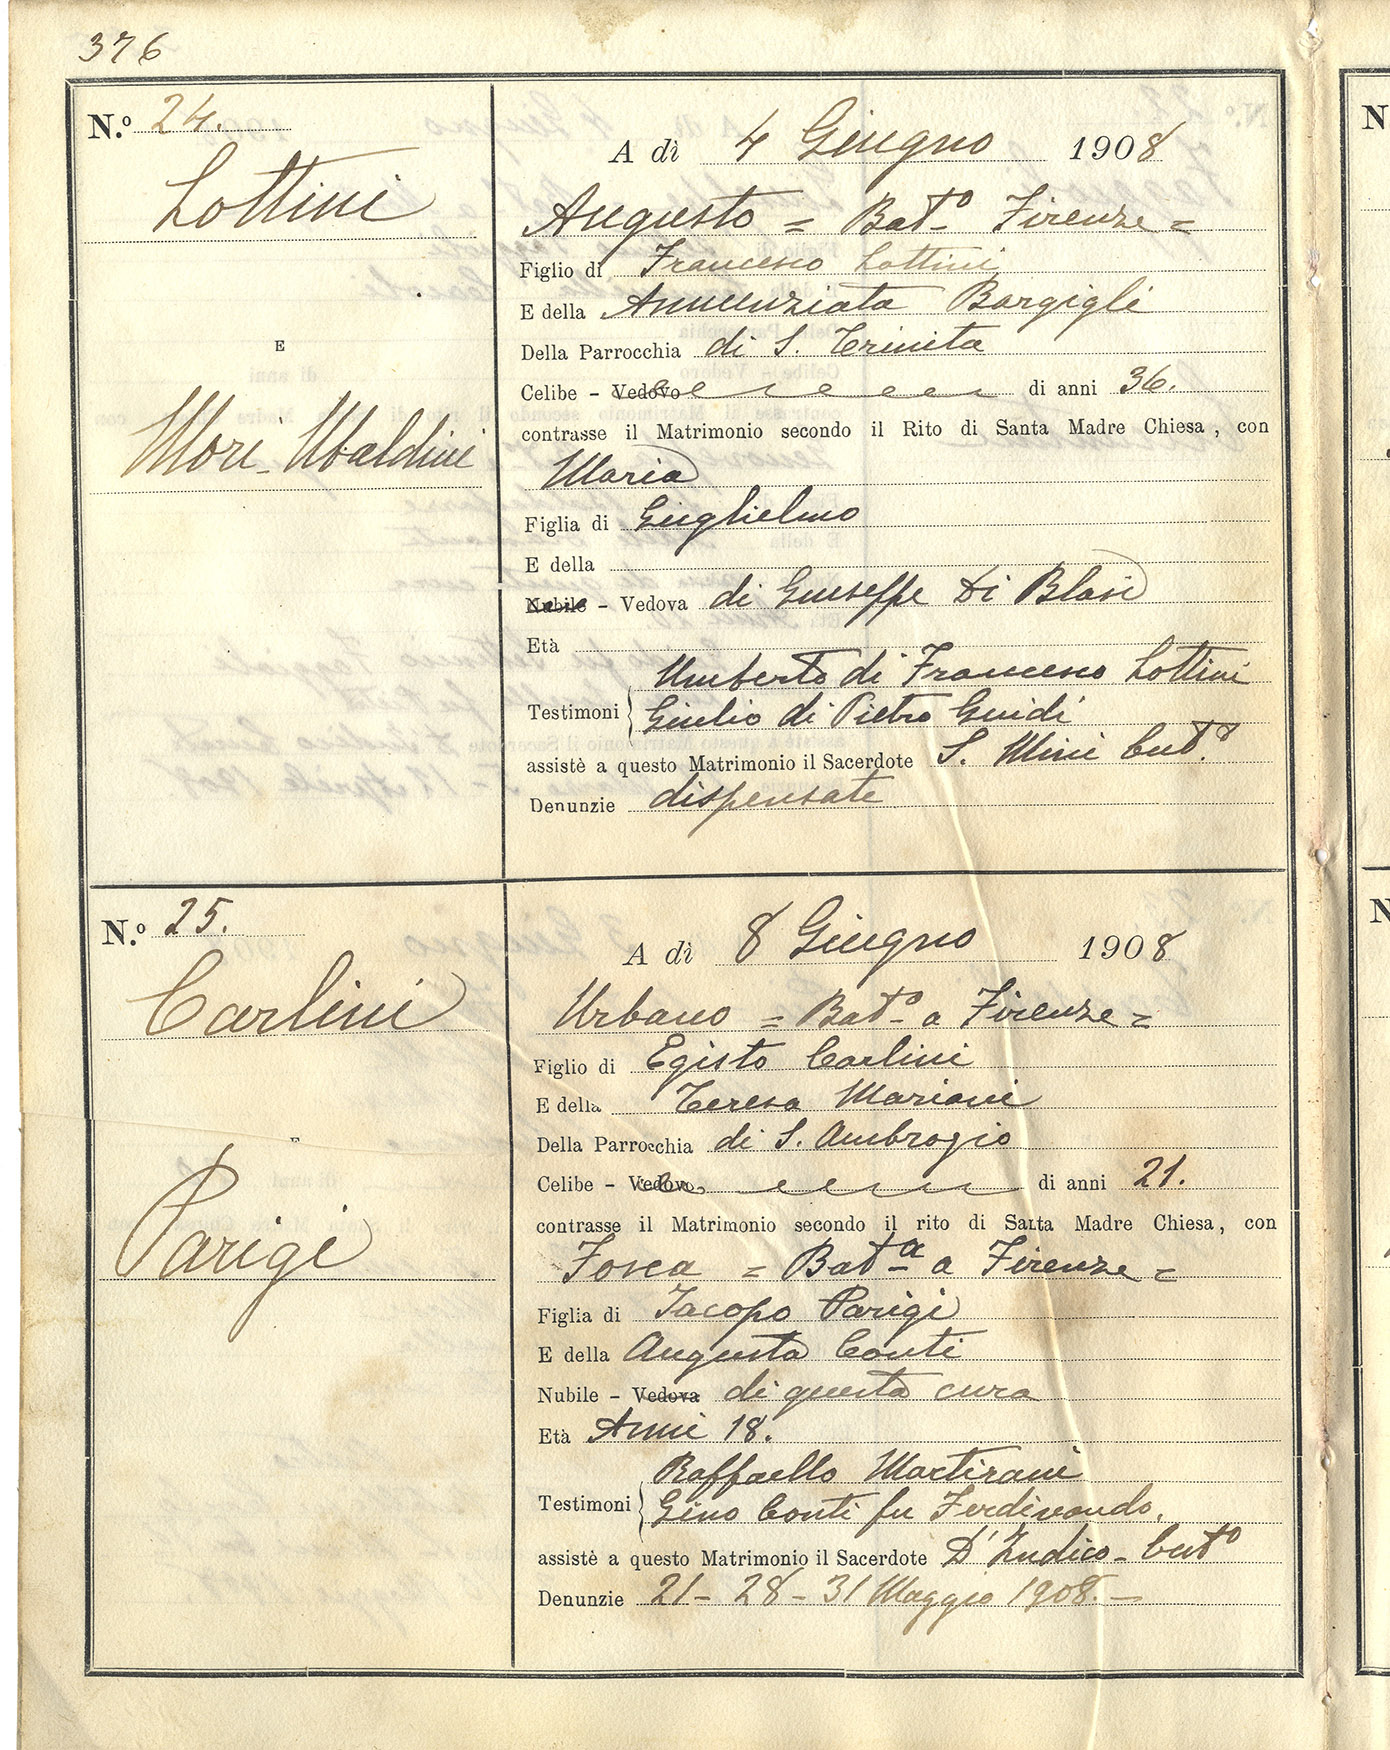 376
N.º 24.
Lottini
E
Mori-Ubaldini
A dì 4 Giugno 1908
Augusto = Batº Firenze =
Figlio di Francesco Lottini
E della Annunziata Bargigli
Della Parrocchia di S. Trinita
Celibe - Vedovo di anni 36.
contrasse il Matrimonio secondo il Rito di Santa Madre Chiesa, con
Maria
Figlia di Guglielmo
E della
Nubile - Vedova di Giuseppe Di Blasi
Età
Umberto di Francesco Lottini
Testimoni Giulio di Pietro Guidi
assistè a questo Matrimonio il Sacerdote S. Mini Cutº
Denunzie dispensate
N.º 25.
Carlini
E
Parigi
A dì 8 Giugno 1908
Urbano = Batº a Firenze =
Figlio di Egisto Carlini
E della Teresa Mariani
Della Parrocchia di S. Ambrogio
Celibe - Vedovo di anni 21.
contrasse il Matrimonio secondo il rito di Santa Madre Chiesa, con
Fosca = Batª a Firenze =
Figlia di Jacopo Parigi
E della Augusta Conti
Nubile - Vedova di questa cura
Età Anni 18.
Raffaello Martirani
Testimoni Gino Conti fu Ferdinando.
assistè a questo Matrimonio il Sacerdote D'Indico - Cutº
Denunzie 21 - 28 - 31 Maggio 1908. -
N
N